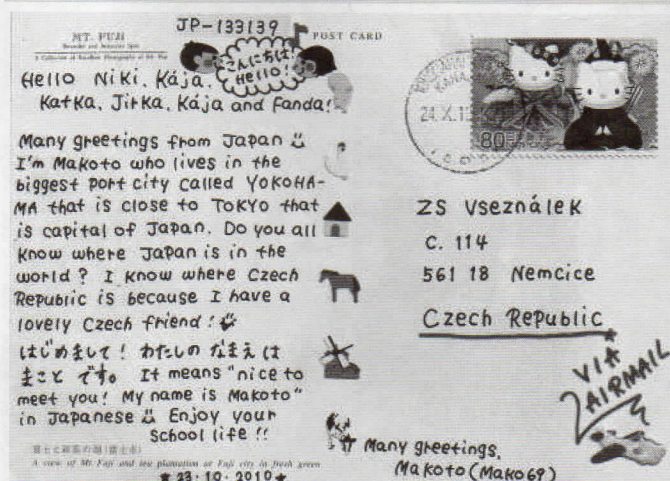 JP-133139
MT. FUJI
POST CARD
こんにちは!
Hello!
Hello Niki, Kája,
Katka, Jirka, Kája and Fanda!
Many greetings from Japan
I'm Makoto who lives in the
biggest port city called YOKOHA-
MA that is close to TOKYO that
is capital of Japan. Do you all
know where Japan is in the
world? I know where Czech
Republic is because I have a
lovely Czech friend!
はじめまして! わたしの なまえ は
まこと です。 It means "nice to
meet you! My name is Makoto"
in Japanese Enjoy your
School life!!
A view of Mt. Fuji and tea plantation at Fuji city in fresh green
★23.10.2010★
24.X.1
80
ZS Vseználek
C. 114
561 18 Nemcice
Czech Republic
VIA
AIRMAIL
Many greetings,
Makoto (Mako69)